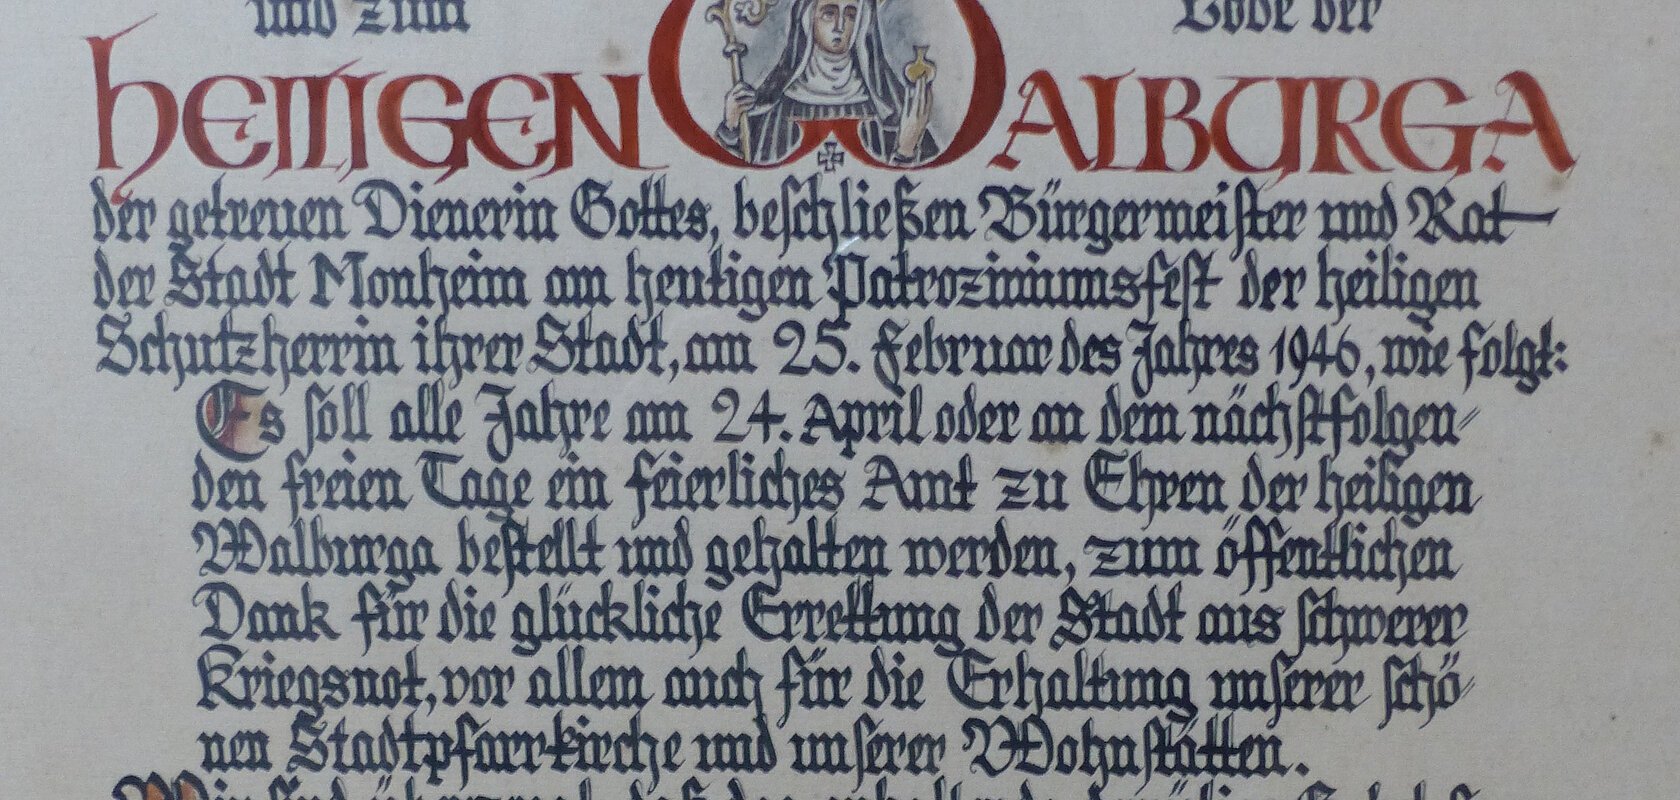 und zum Lobe der
HEILIGEN WALBURGA
der getreuen Dienerin Gottes, beschließen Bürgermeister und Rat
der Stadt Monheim am heutigen Patroziniumsfest der heiligen
Schutzherrin ihrer Stadt, am 25. Februar des Jahres 1946, wie folgt:
Es soll alle Jahre am 24. April oder an dem nächstfolgen-
den freien Tage ein feierliches Amt zu Ehren der heiligen
Walburga bestellt und gehalten werden, zum öffentlichen
Dank für die glückliche Errettung der Stadt aus schwerer
Kriegsnot, vor allem auch für die Erhaltung unserer schö-
nen Stadtpfarrkirche und unserer Wohnstätten.
Wir sind überzeugt, daß das